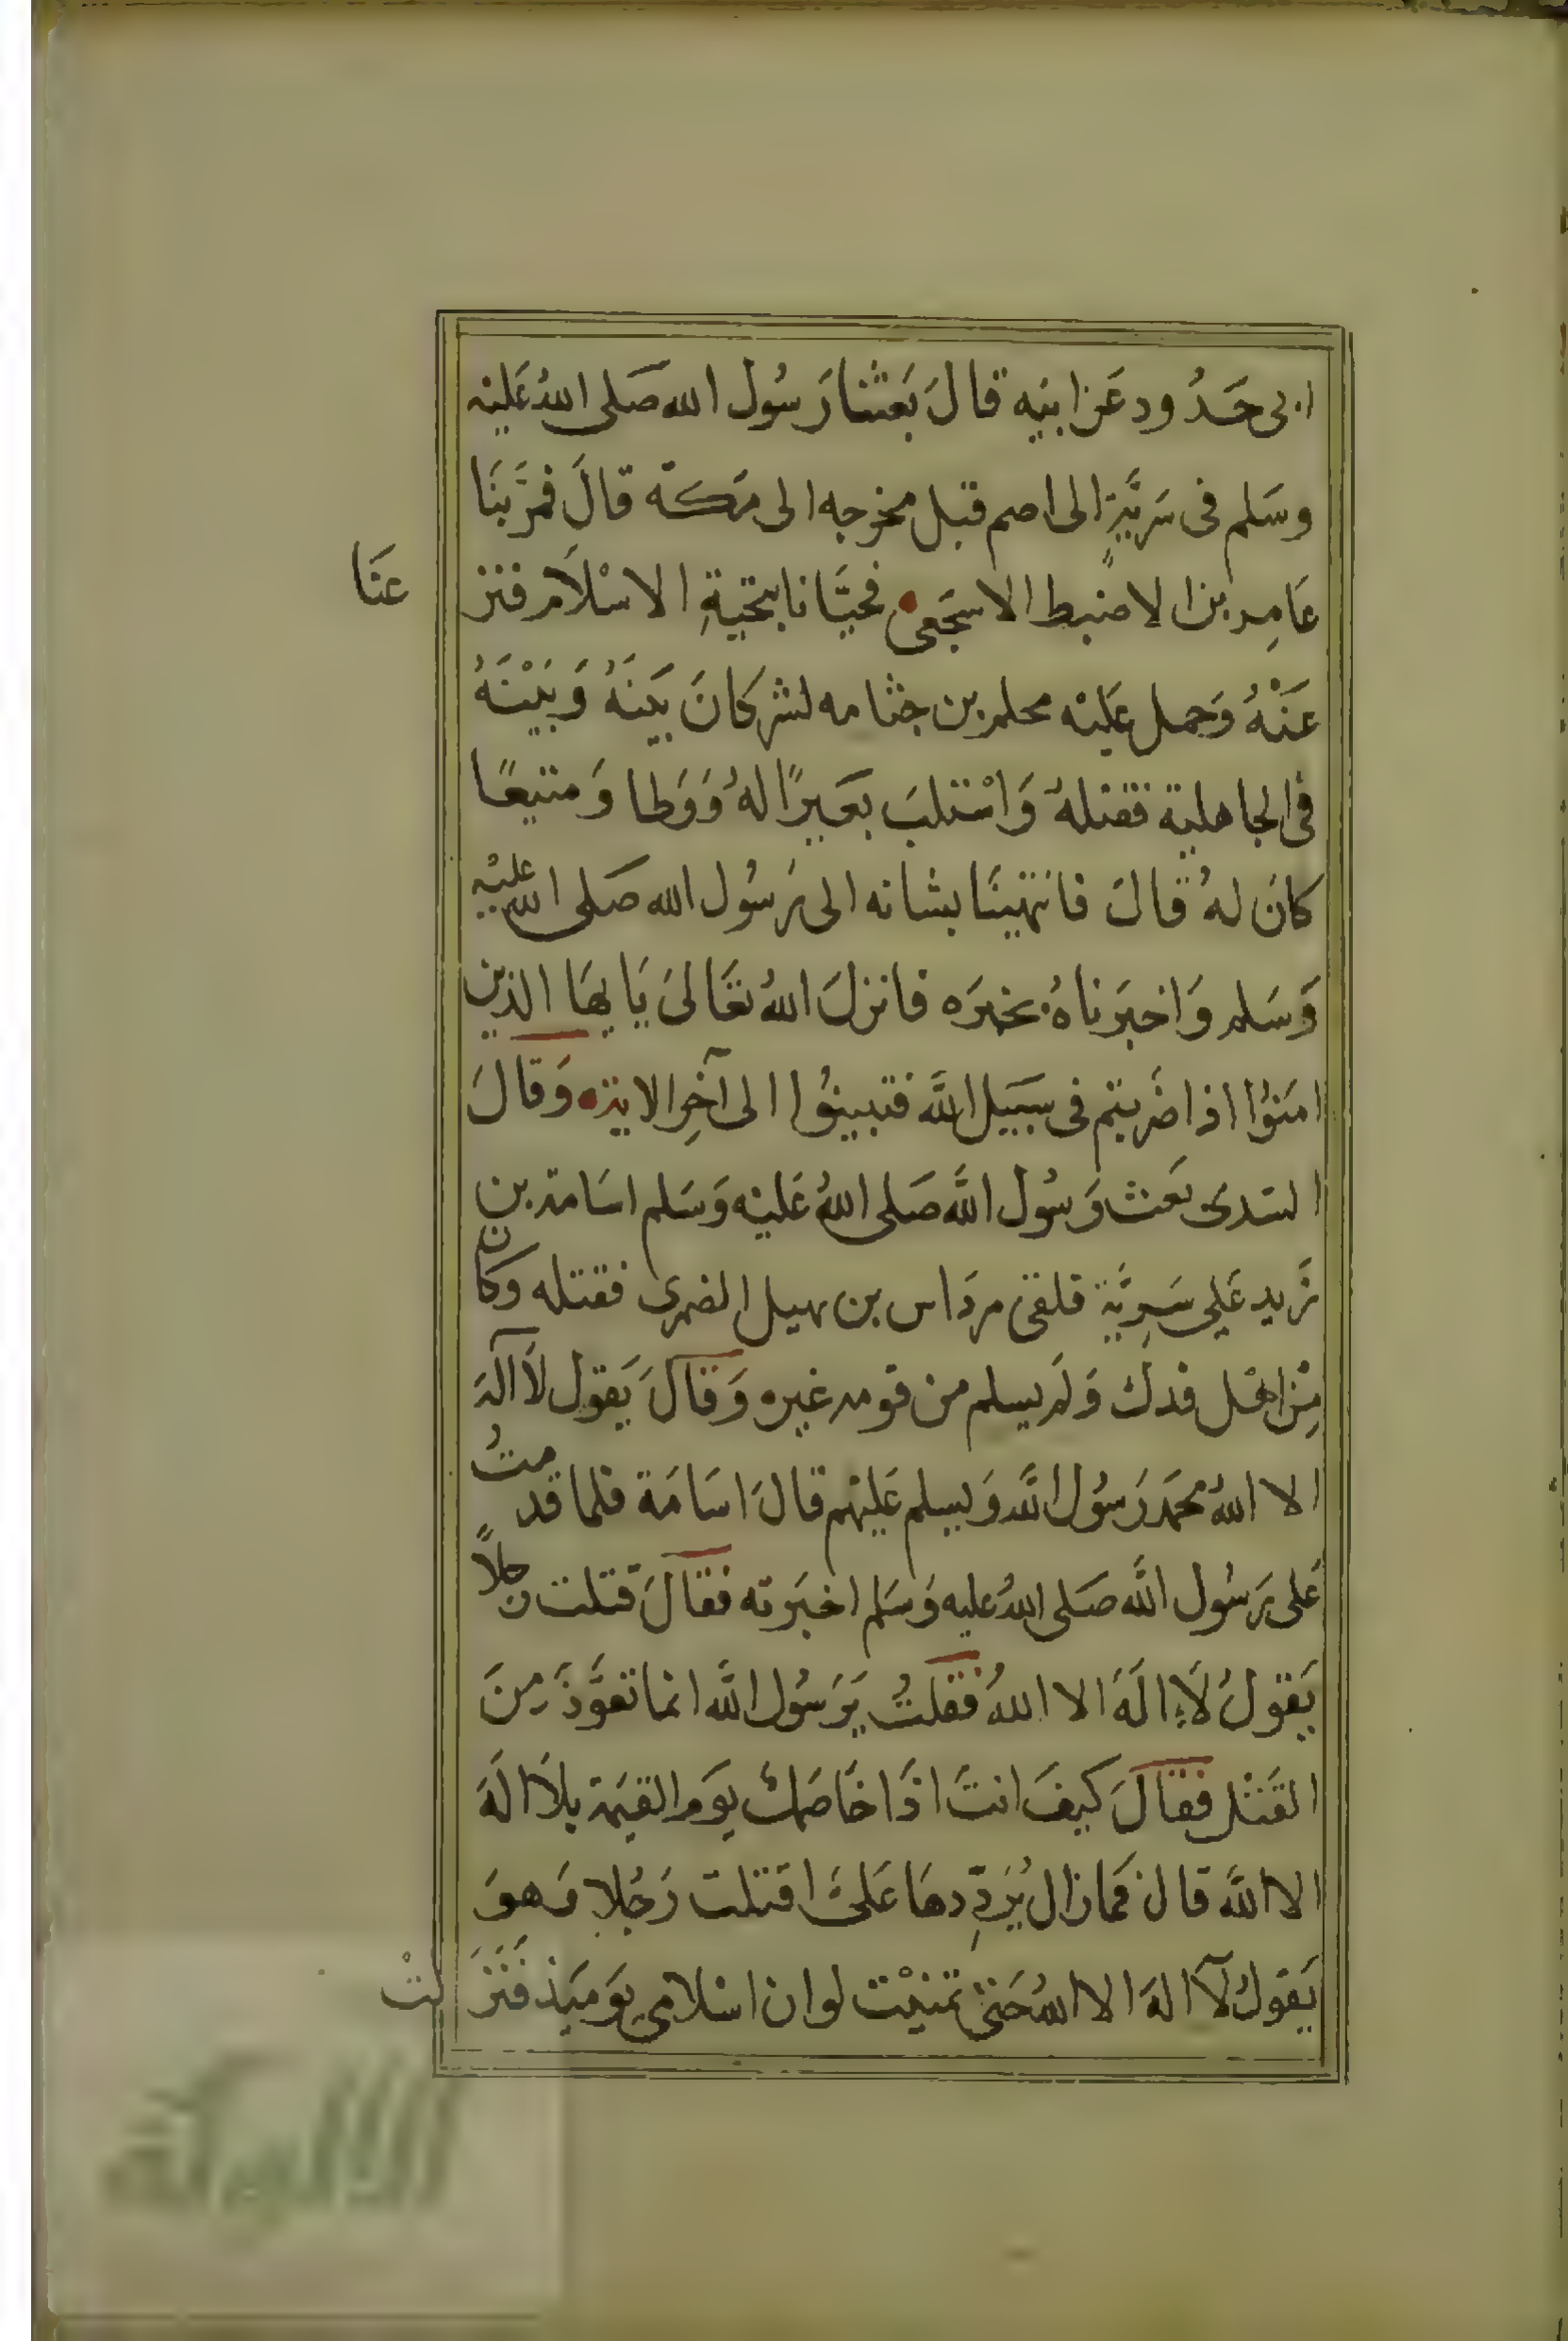 ابى حَدُود عَن ابيَه قالَ بَعثنا رَسُول الله صَلى اللهُ عَليْه
وسَلم فى سَريَّةٍ الى اصم قبل مخرجه الى مَكة قالَ فمرَّ بنَا
عَامِر بن الاضبط الاشجَعى فحيَّانا بتحيةِ الاسْلَام فنز عنَا
عَنْهُ وَحمل عَليْه محلم بن جثامه لشر كانَ بَينَهُ وَبَيْنَهُ
فى الجاهلية فقتلهُ وَاسْتلبَ بعَيرًا لهُ وَوَطا وَمتيعًا
كانَ لهُ قالَ فانتهينَا بشانه الى رَسُول الله صَلى الله عليْه
وَسَلم وَاخبَرناهُ بخبرَه فانزلَ اللهُ تعَالىَ يَا يهَا الذين
امَنوُا اذا ضَربتم فى سبَيل اللَّه فتبينوُا الى آخِر الاية وَقالَ
السَدى بَعث رَسُول اللَّه صَلى اللهُ عَليْه وَسَلم اسَامة بن
زَيد عَلى سَرِيَّة فلقى مردَاس بن نهيل الضمرى فقتله وكان
مِن اهْل فدك وَلم يسلم من قومه غيره وَقالَ يَقول لاَ آلهَ
الا اللهُ محمَد رَسُول اللَّه وَيسلم عَليْهم قالَ اسَامَة فلما قدمتُ
عَلى رَسُول اللَّه صَلى اللهُ عليه وَسَلم اخبَرته فقَالَ قتلت رجلاً
يَقولُ لَا الَهَ الا اللهُ فقلتُ يَرَسُول اللَّه انما تعَوَّذَ مِنَ
القَتْل فقَالَ كيفَ انتَ اذَا خَاصَمكَ يوَم القيمَة بلاَ الَهَ
الا اللَّه قال فمَا زال يُرَدِّدهَا عَلىَّ اقتلت رَجُلا وَهوَ
يَقولُ لآ الهَ الا اللهُ حَتى تمنيْت لوان اسْلامى يوَميَذ فَنَزَلتْ